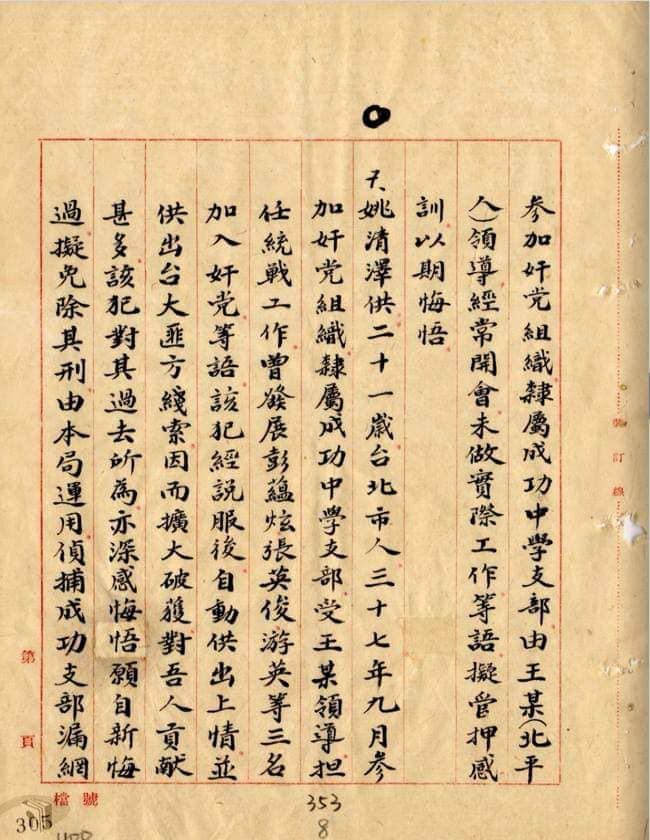 參加奸党組織隸屬成功中學支部由王某(北平
人)領導經常開會未做實際工作等語擬管押感
訓以期悔悟
姚清澤供二十一歲台北市人三十七年九月參
加奸党組織隸屬成功中學支部受王某領導担
任統戰工作曾發展彭蘊炫張英俊游英等三名
加入奸党等語該犯經説服後自動供出上情並
供出台大匪方綫索因而擴大破獲對吾人貢献
甚多該犯對其過去所為亦深感悔悟願自新悔
過擬免除其刑由本局運用偵捕成功支部漏網
裝訂線
第 頁
檔號
353
8
305